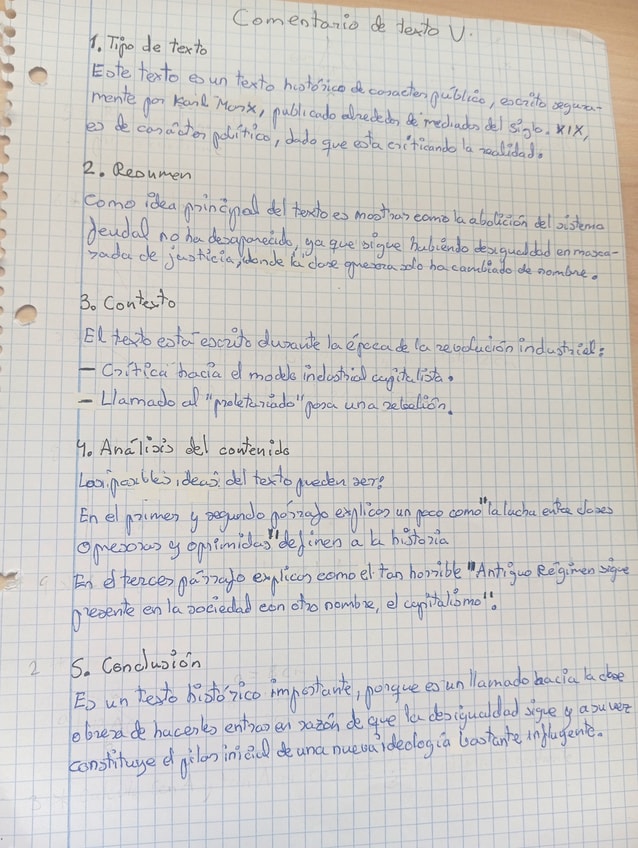 Comentario de texto V.
1. Tipo de texto
Este texto es un texto histórico de carácter público, escrito segura-
mente por Karl Marx, publicado alrededor de mediados del siglo XIX,
es de carácter político, dado que esta criticando la realidad.
2. Resumen
Como idea principal del texto es mostrar como la abolición del sistema
feudal no ha desaparecido, ya que sigue hubiendo desigualdad enmasca-
rada de justicia, donde la clase opresora solo ha cambiado de nombre.
3. Contexto
El texto está escrito durante la época de la revolución industrial:
- Crítica hacia el modelo industrial capitalista.
- Llamado al "proletariado" para una rebelión.
4. Análisis del contenido
Las posibles ideas del texto pueden ser:
En el primer y segundo párrafo explican un poco como "la lucha entre clases
opresoras y oprimidas" definen a la historia
En el tercer párrafo explican como el tan horrible "Antiguo Régimen sigue
presente en la sociedad con otro nombre, el capitalismo".
2 5. Conclusión
Es un texto histórico importante, porque es un llamado hacia la clase
obrera de hacerles entrar en razón de que la desigualdad sigue y a su vez
constituye el pilar inicial de una nueva ideología bastante influyente.